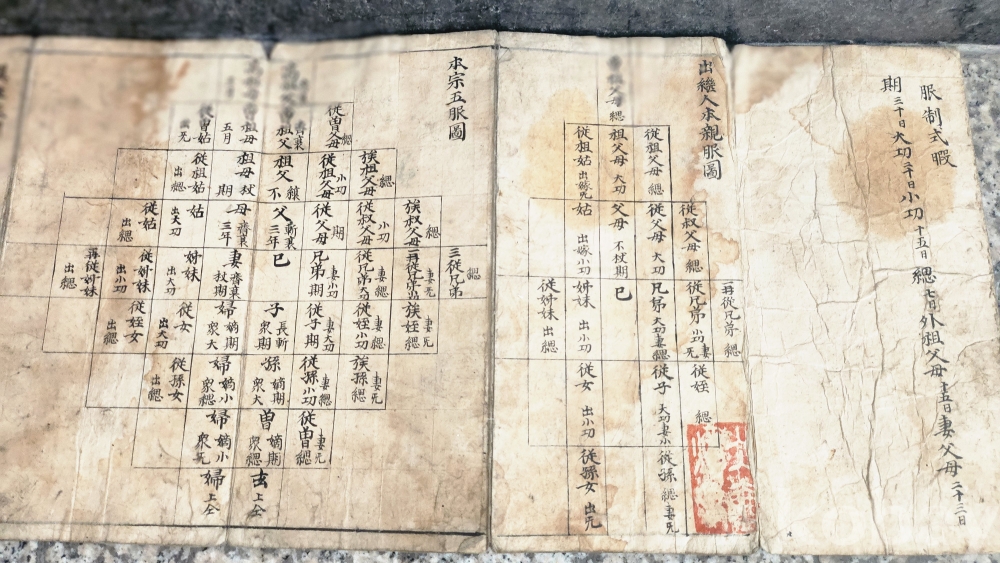 服制式暇
期三十日大功二十日小功十五日緦七日外祖父母十五日妻父母二十三日
出繼人本親服圖
緦
從祖父母 緦
祖父母 大功
從祖姑 出嫁无
從叔父母 緦
從父母 大功
父母 不杖期
姑 出嫁小功
再從兄弟 緦
從兄弟 小功 妻无
兄弟 大功 妻緦
己
姊妹 出小功
從姊妹 出緦
從姪 緦
從子 大功 妻小
從女 出小功
從孫 緦 妻无
從孫女 出无
本宗五服圖
從曾父母 緦
祖父
祖母 五月
從曾姑
族祖父母 緦
從祖父母 小功
祖父 不
祖母 杖期
從祖姑 出緦
族叔父母 緦
從叔父母 小功
從父母 期
父 斬衰三年
母 齊衰三年
姑 出大功
從姑 出緦
三從兄弟 緦
再從兄弟 妻无
從兄弟 大功 妻緦
兄弟 期 妻小功
己
妻 齊衰杖期
姊妹 出大功
從姊妹 出小功
再從姊妹 出緦
族姪 緦 妻无
從姪 小功 妻緦
從子 期 妻大功
子 長斬 衆期
婦 嫡期 衆大
從女 出大功
從姪女 出緦
族孫 緦 妻无
從孫 小功 妻緦
孫 嫡期 衆大
婦 嫡小 衆緦
從孫女 出緦
從曾 緦 妻无
曾 嫡期 衆緦
婦 嫡小 衆无
玄 上仝
婦 上仝